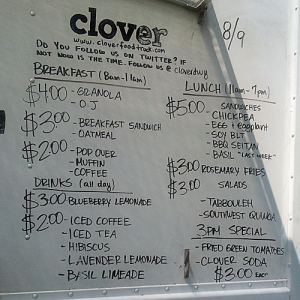 clover
www.cloverfoodtruck.com
8/9
DO YOU FOLLOW US ON TWITTER? IF
NOT NOW IS THE TIME. FOLLOW US @cloverdwy
BREAKFAST (8am-11am)
$4.00 - GRANOLA
- O.J
$3.00 - BREAKFAST SANDWICH
- OATMEAL
$2.00 - POP OVER
- MUFFIN
- COFFEE
DRINKS (all day)
$3.00 BLUEBERRY LEMONADE
$2.00 - ICED COFFEE
- ICED TEA
- HIBISCUS
- LAVENDER LEMONADE
- BASIL LIMEADE
LUNCH (11am-7pm)
$5.00 SANDWICHES
- CHICKPEA
- EGG + eggplant
- SOY BLT
- BBQ SEITAN
- BASIL "LAST WEEK"
$3.00 ROSEMARY FRIES
$3.00 SALADS
- TABBOULEH
- SOUTHWEST QUINOA
3PM SPECIAL
- FRIED GREEN TOMATOES
- CLOVER SODA
$3.00 EACH